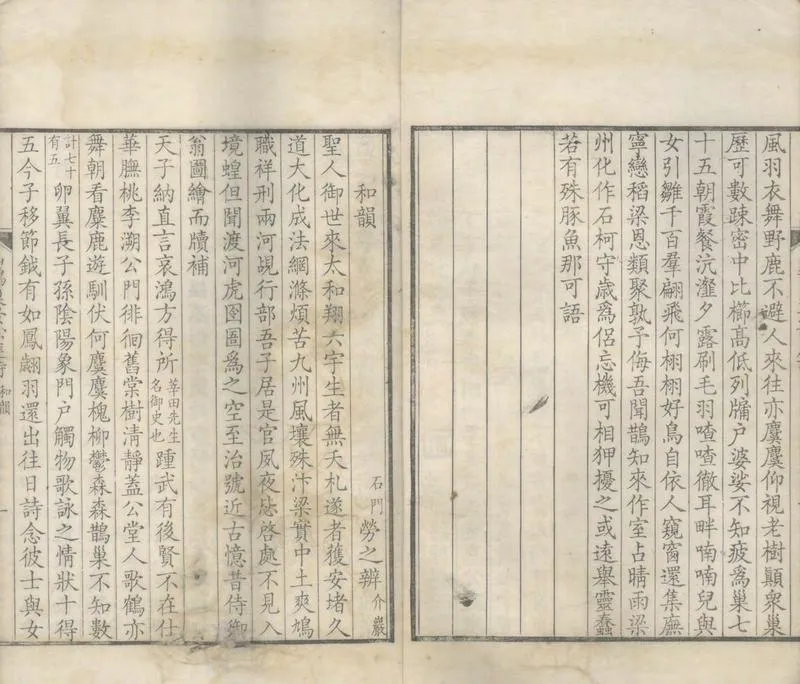 風羽衣舞野鹿不避人來往亦麌麌仰視老樹顛衆巢
歷可數踈密中比櫛髙低列牖户婆娑不知疲爲巢七
十五朝霞餐沆瀣夕露刷毛羽喳喳徹耳畔喃喃兒與
女引雛千百羣翩飛何栩栩好鳥自依人窺窗還集廡
寧戀稻梁恩類聚孰予侮吾聞鵲知來作室占晴雨梁
州化作石柯守歲爲侶忘機可相狎擾之或遠舉靈蠢
若有殊豚魚那可語
和韻
石門 勞之辨 介巖
聖人御世來太和翔六宇生者無夭札遂者獲安堵久
道大化成法網滌煩苦九州風壤殊汴梁實中土爽鳩
職祥刑兩河覘行部吾子居是官夙夜愻啓處不見入
境蝗但聞渡河虎囹圄爲之空至治號近古憶昔侍御
翁圖繪而牘補
天子納直言哀鴻方得所 莘田先生名御史也 踵武有後賢不在仕
華膴桃李溯公門徘徊舊棠樹淸靜蓋公堂人歌鶴亦
舞朝看麋鹿遊馴伏何麌麌槐柳鬱森森鵲巢不知數
計七十有五 卵翼長子孫陰陽象門户觸物歌詠之情狀十得
五今子移節鉞有如鳳翽羽還出往日詩念彼士與女
和韻
一